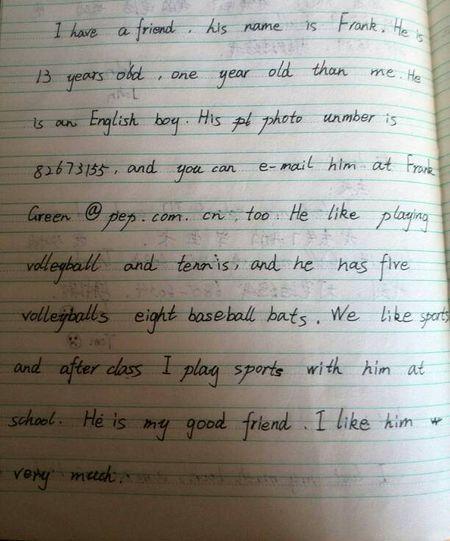 I have a friend. his name is Frank. He is
13 years old, one year old than me. He
is an English boy. His photo unmber is
82673155, and you can e-mail him at Frank
Green @ pep. com. cn, too. He like playing
volleyball and tennis, and he has five
volleyballs eight baseball bats. We like sports
and after class I play sports with him at
school. He is my good friend. I like him
very much.